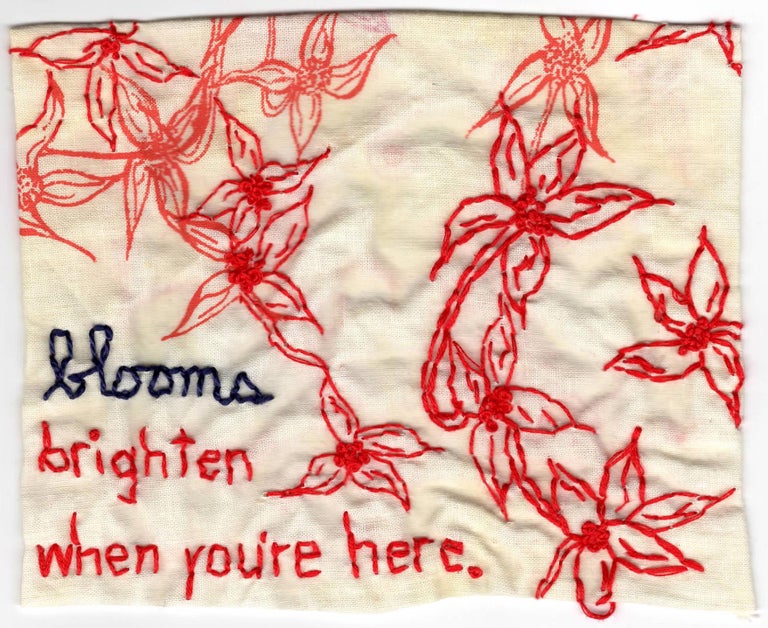 blooms
brighten
when you're here.